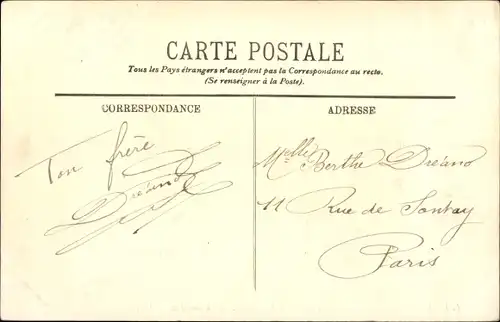 CARTE POSTALE
Tous les Pays étrangers n'acceptent pas la Correspondance au recto.
(Se renseigner à la Poste).
CORRESPONDANCE
ADRESSE
Ton frère
Dréano
Melle Berthe Dréano
11 Rue de Fontay
Paris